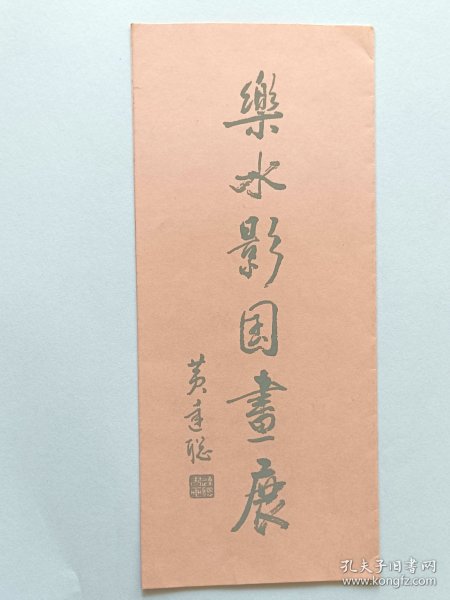 樂水影国畫展
黄達聪
孔夫子旧书网
www.kongfz.com